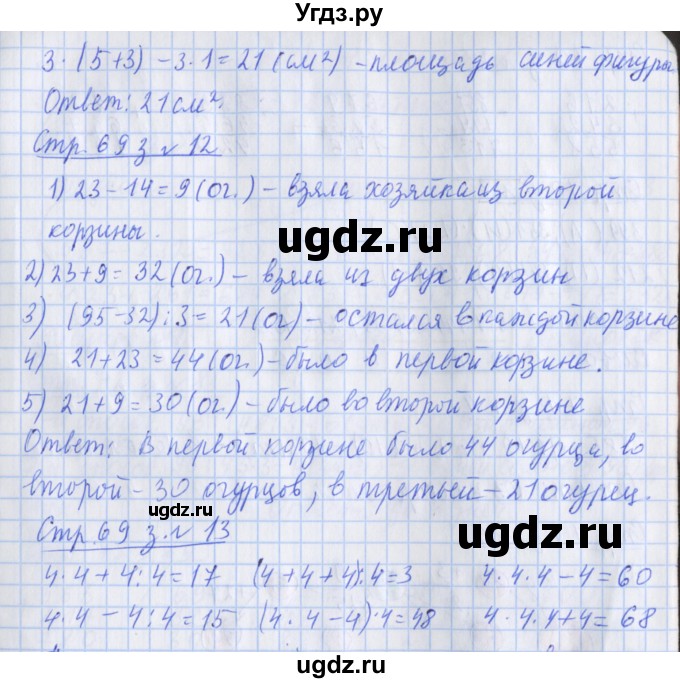 Угдз.ру
3·(5+3) – 3·1 = 21 (см²) – площадь синей фигуры
Ответ: 21 см².
Стр. 69 з. № 12
1) 23 – 14 = 9 (ог.) – взяла хозяйка из второй
корзины.
ugdz.ru
2) 23 + 9 = 32 (ог.) – взяла из двух корзин
3) (95 – 32) : 3 = 21 (ог) – остался в каждой корзине
4) 21 + 23 = 44 (ог.) – было в первой корзине.
ugdz.ru
5) 21 + 9 = 30 (ог.) – было во второй корзине
Ответ: В первой корзине было 44 огурца, во
второй – 30 огурцов, в третьей – 21 огурец.
ugdz.ru
Стр. 69 з. № 13
4·4 + 4:4 = 17 (4+4+4):4 = 3 4·4·4 – 4 = 60
4·4 – 4:4 = 15 (4·4–4)·4 = 48 4·4·4+4 = 68
ugdz.ru